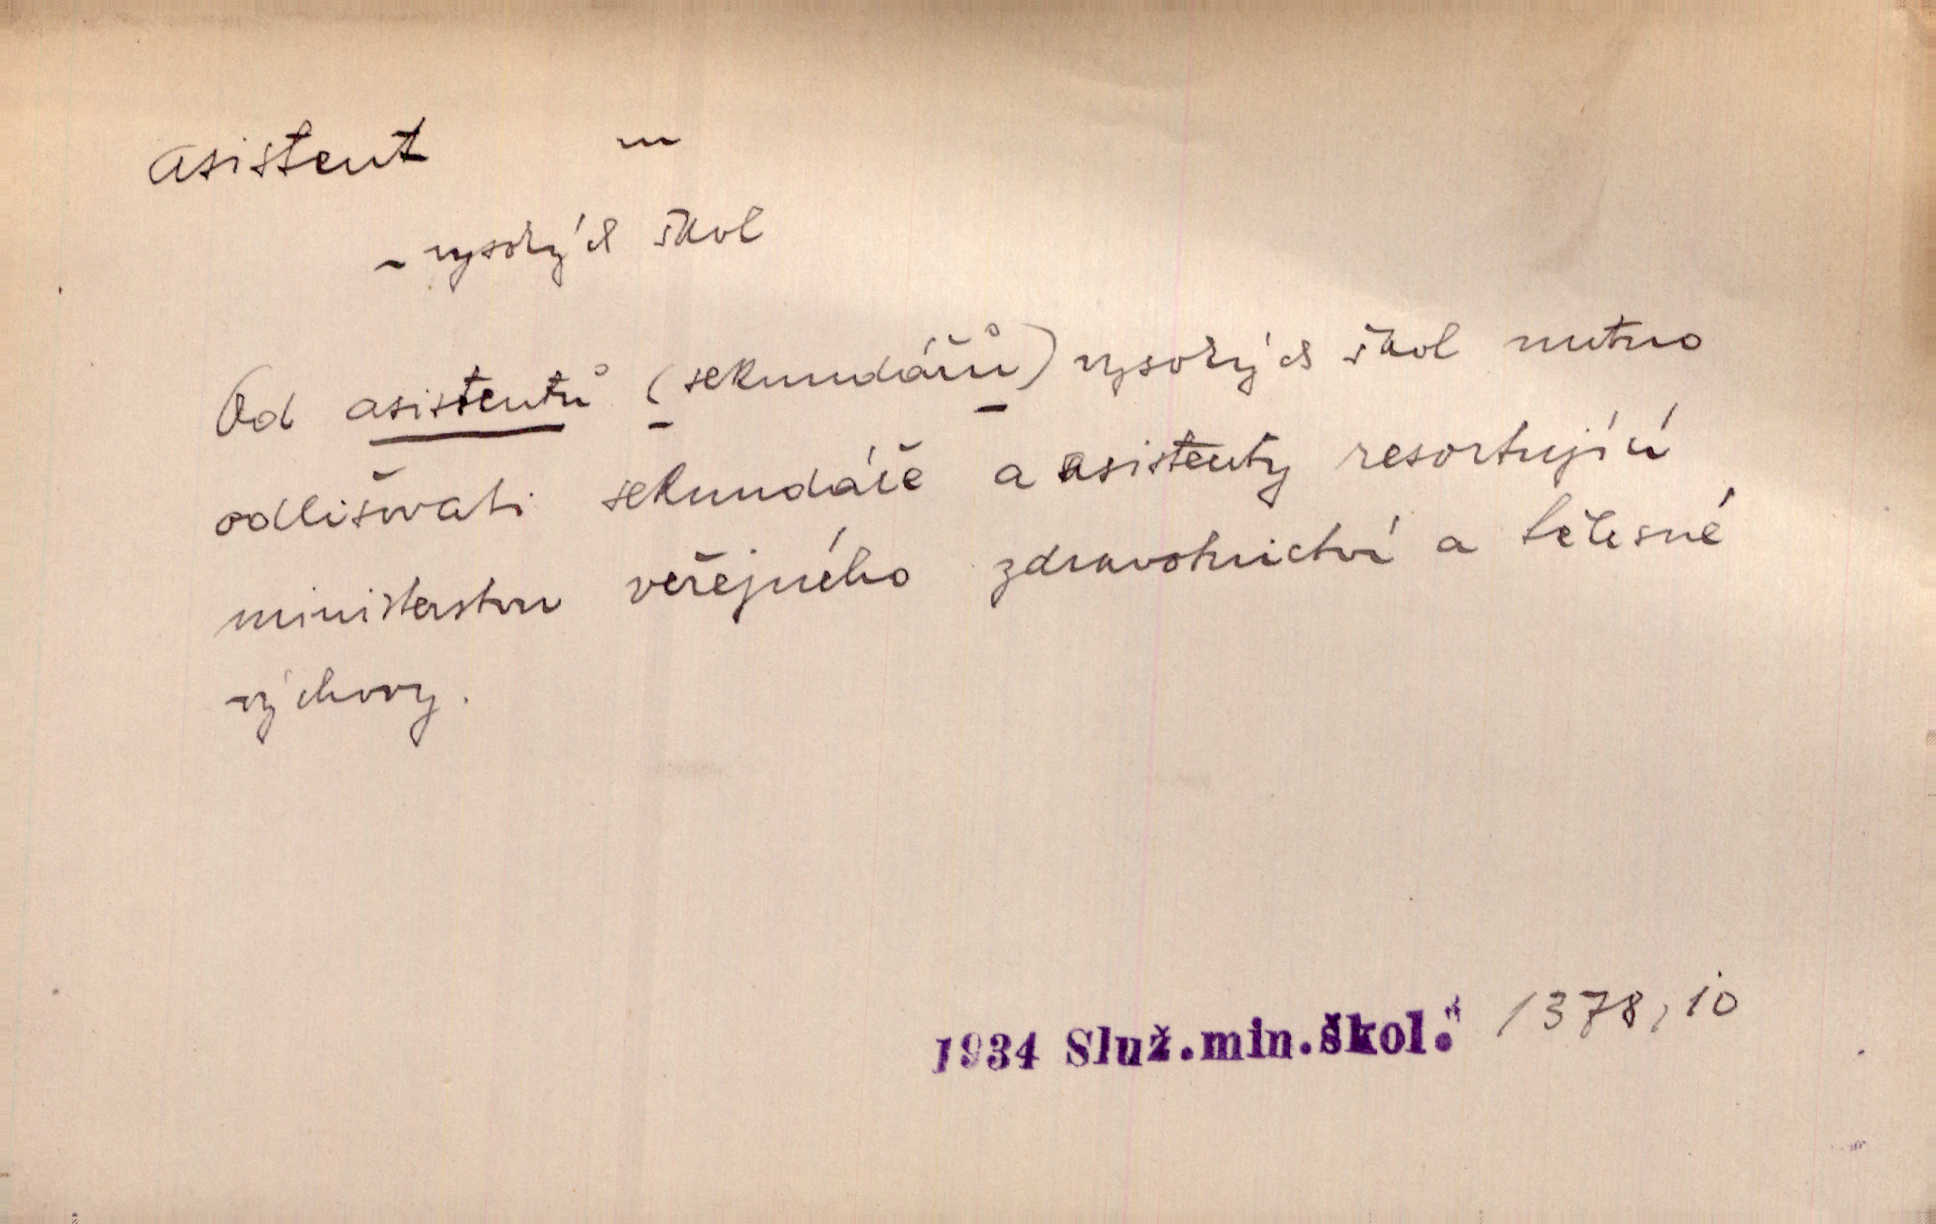 asistent m
~ vysokých škol
Od asistentů (sekundářů) vysokých škol nutno
odlišovati sekundáře a asistenty resortující
ministerstvu veřejného zdravotnictví a tělesné
výchovy.
1934 Služ.min.škol. 1378, 10